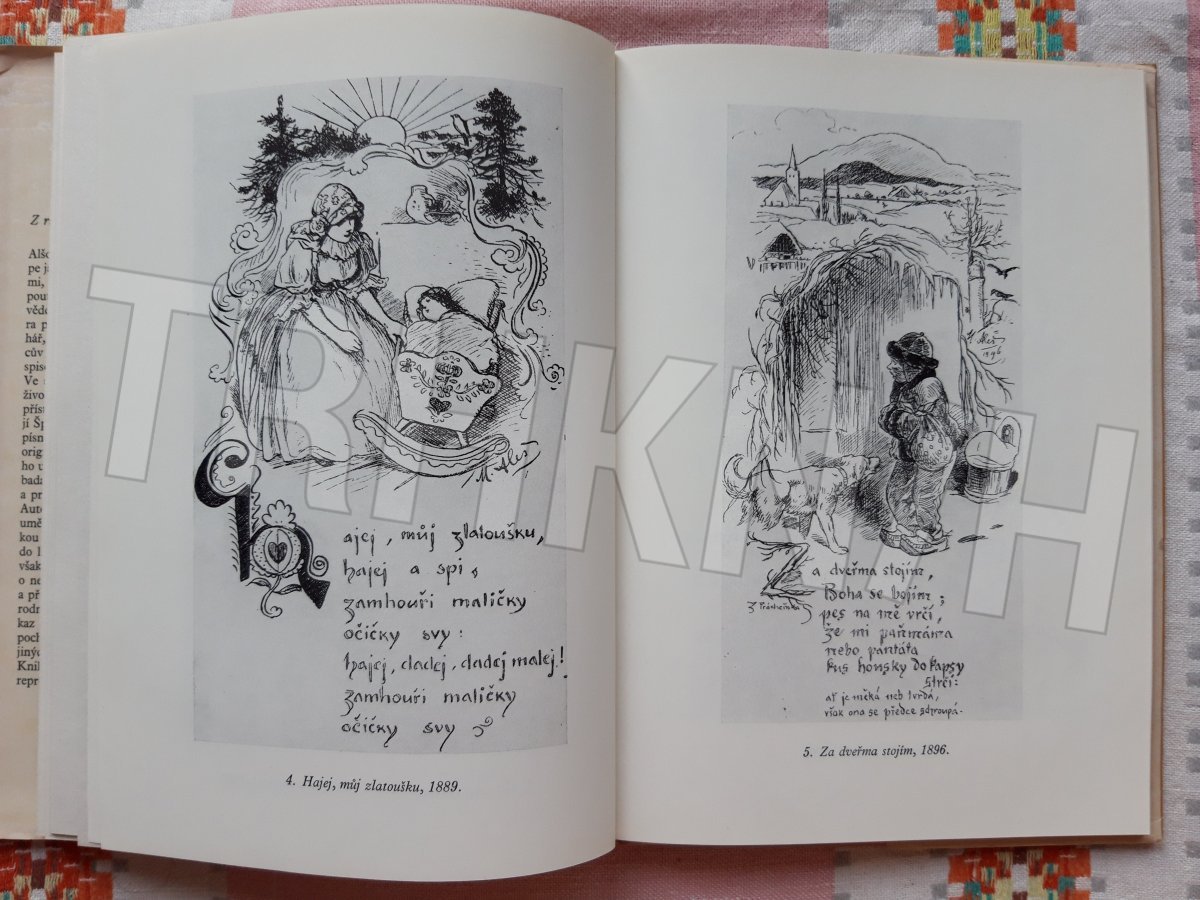 Z r
Alšo
pe ja
mi,
pou
vědo
ra p
hář,
cův
spiso
Ve
živo
příst
jí Šp
písn
orig
ho u
bada
a pr
Auto
umě
kou
do l
však
o ne
a př
rodn
kaz
poch
jinýc
Knih
repr
M. Aleš
Hajej, můj zlatoušku,
hajej a spi,
zamhouři maličky
očičky svy:
hajej, dadej, dadej malej!
zamhouři maličky
očičky svy
4. Hajej, můj zlatoušku, 1889.
M. Aleš
1896
Za dveřma stojím,
Boha se bojím;
pes na mě vrčí,
že mi pañmáma
nebo pantáta
kus housky do kapsy
strčí:
ať je měká neb tvrdá,
však ona se předce schroupá.
5. Za dveřma stojím, 1896.
TRHKNIH